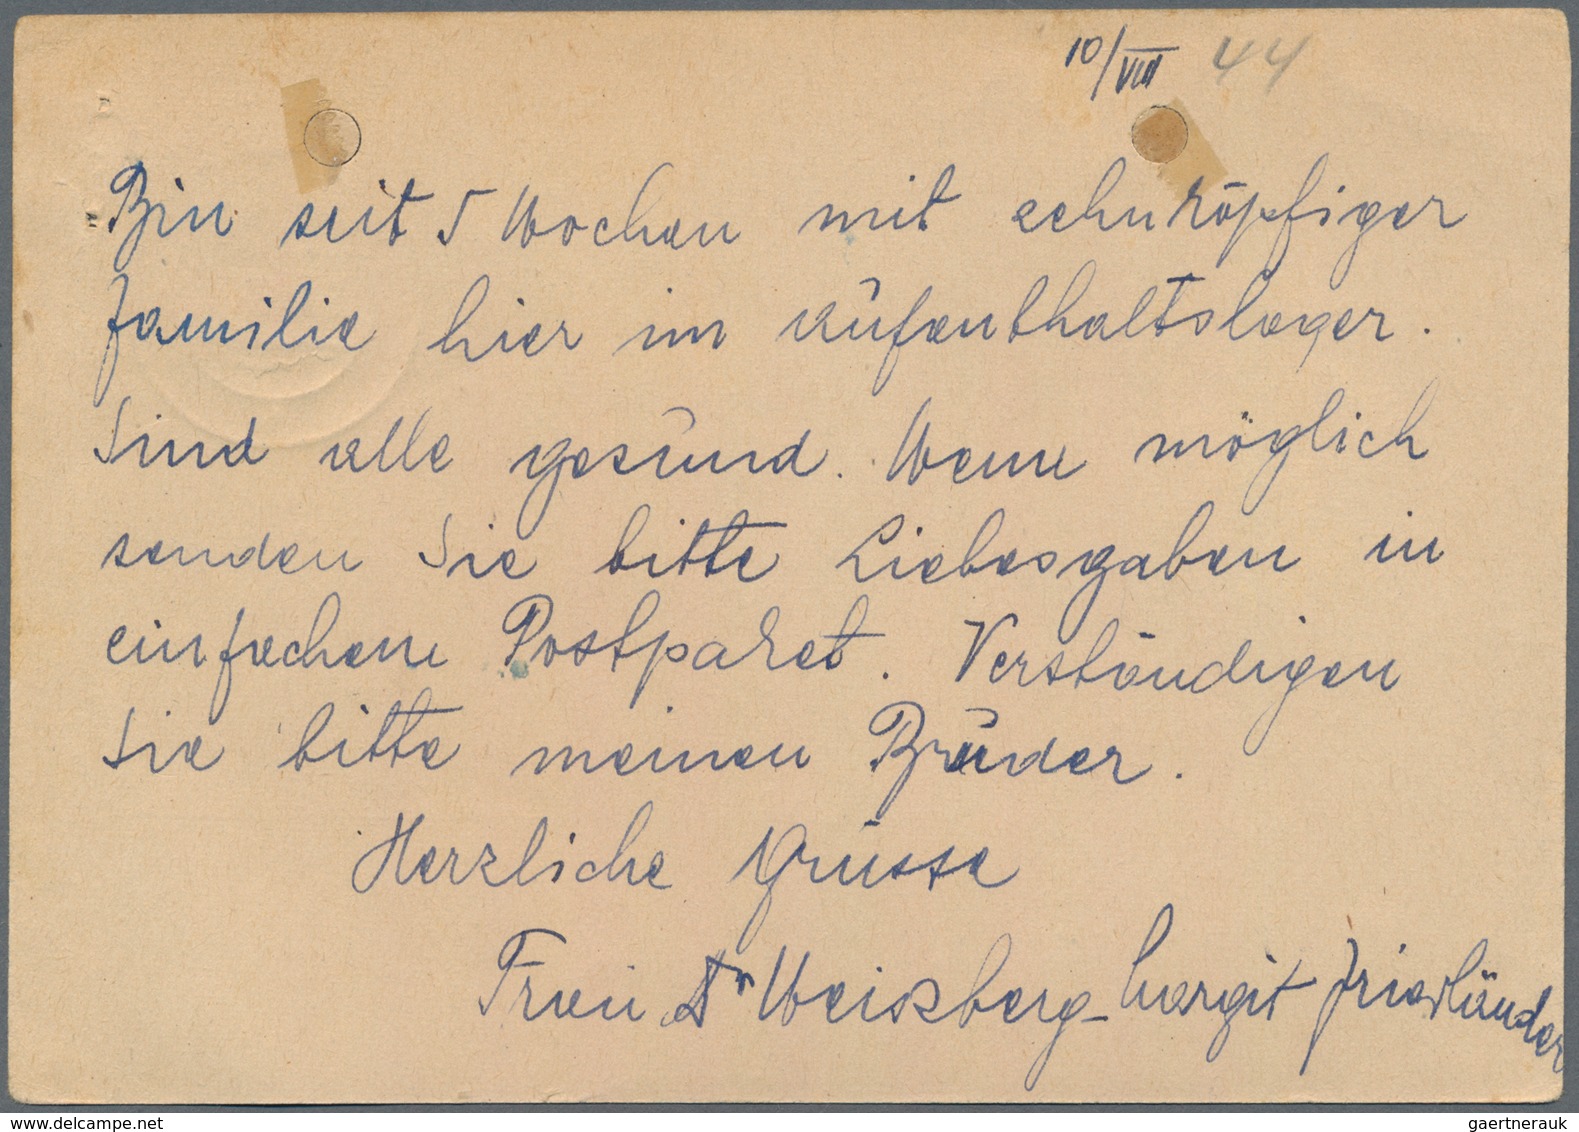 10/VIII 44
Bin seit 5 Wochen mit zehnköpfiger
Familie hier im Aufenthaltslager.
Sind alle gesund. Wenn möglich
senden Sie bitte Liebesgaben in
einfachem Postpaket. Verständigen
Sie bitte meinen Brüder.
Herzliche Grüsse
Frau Dr Weiszberg - Margit Friedländer
www.delcampe.net
gaertnerauk